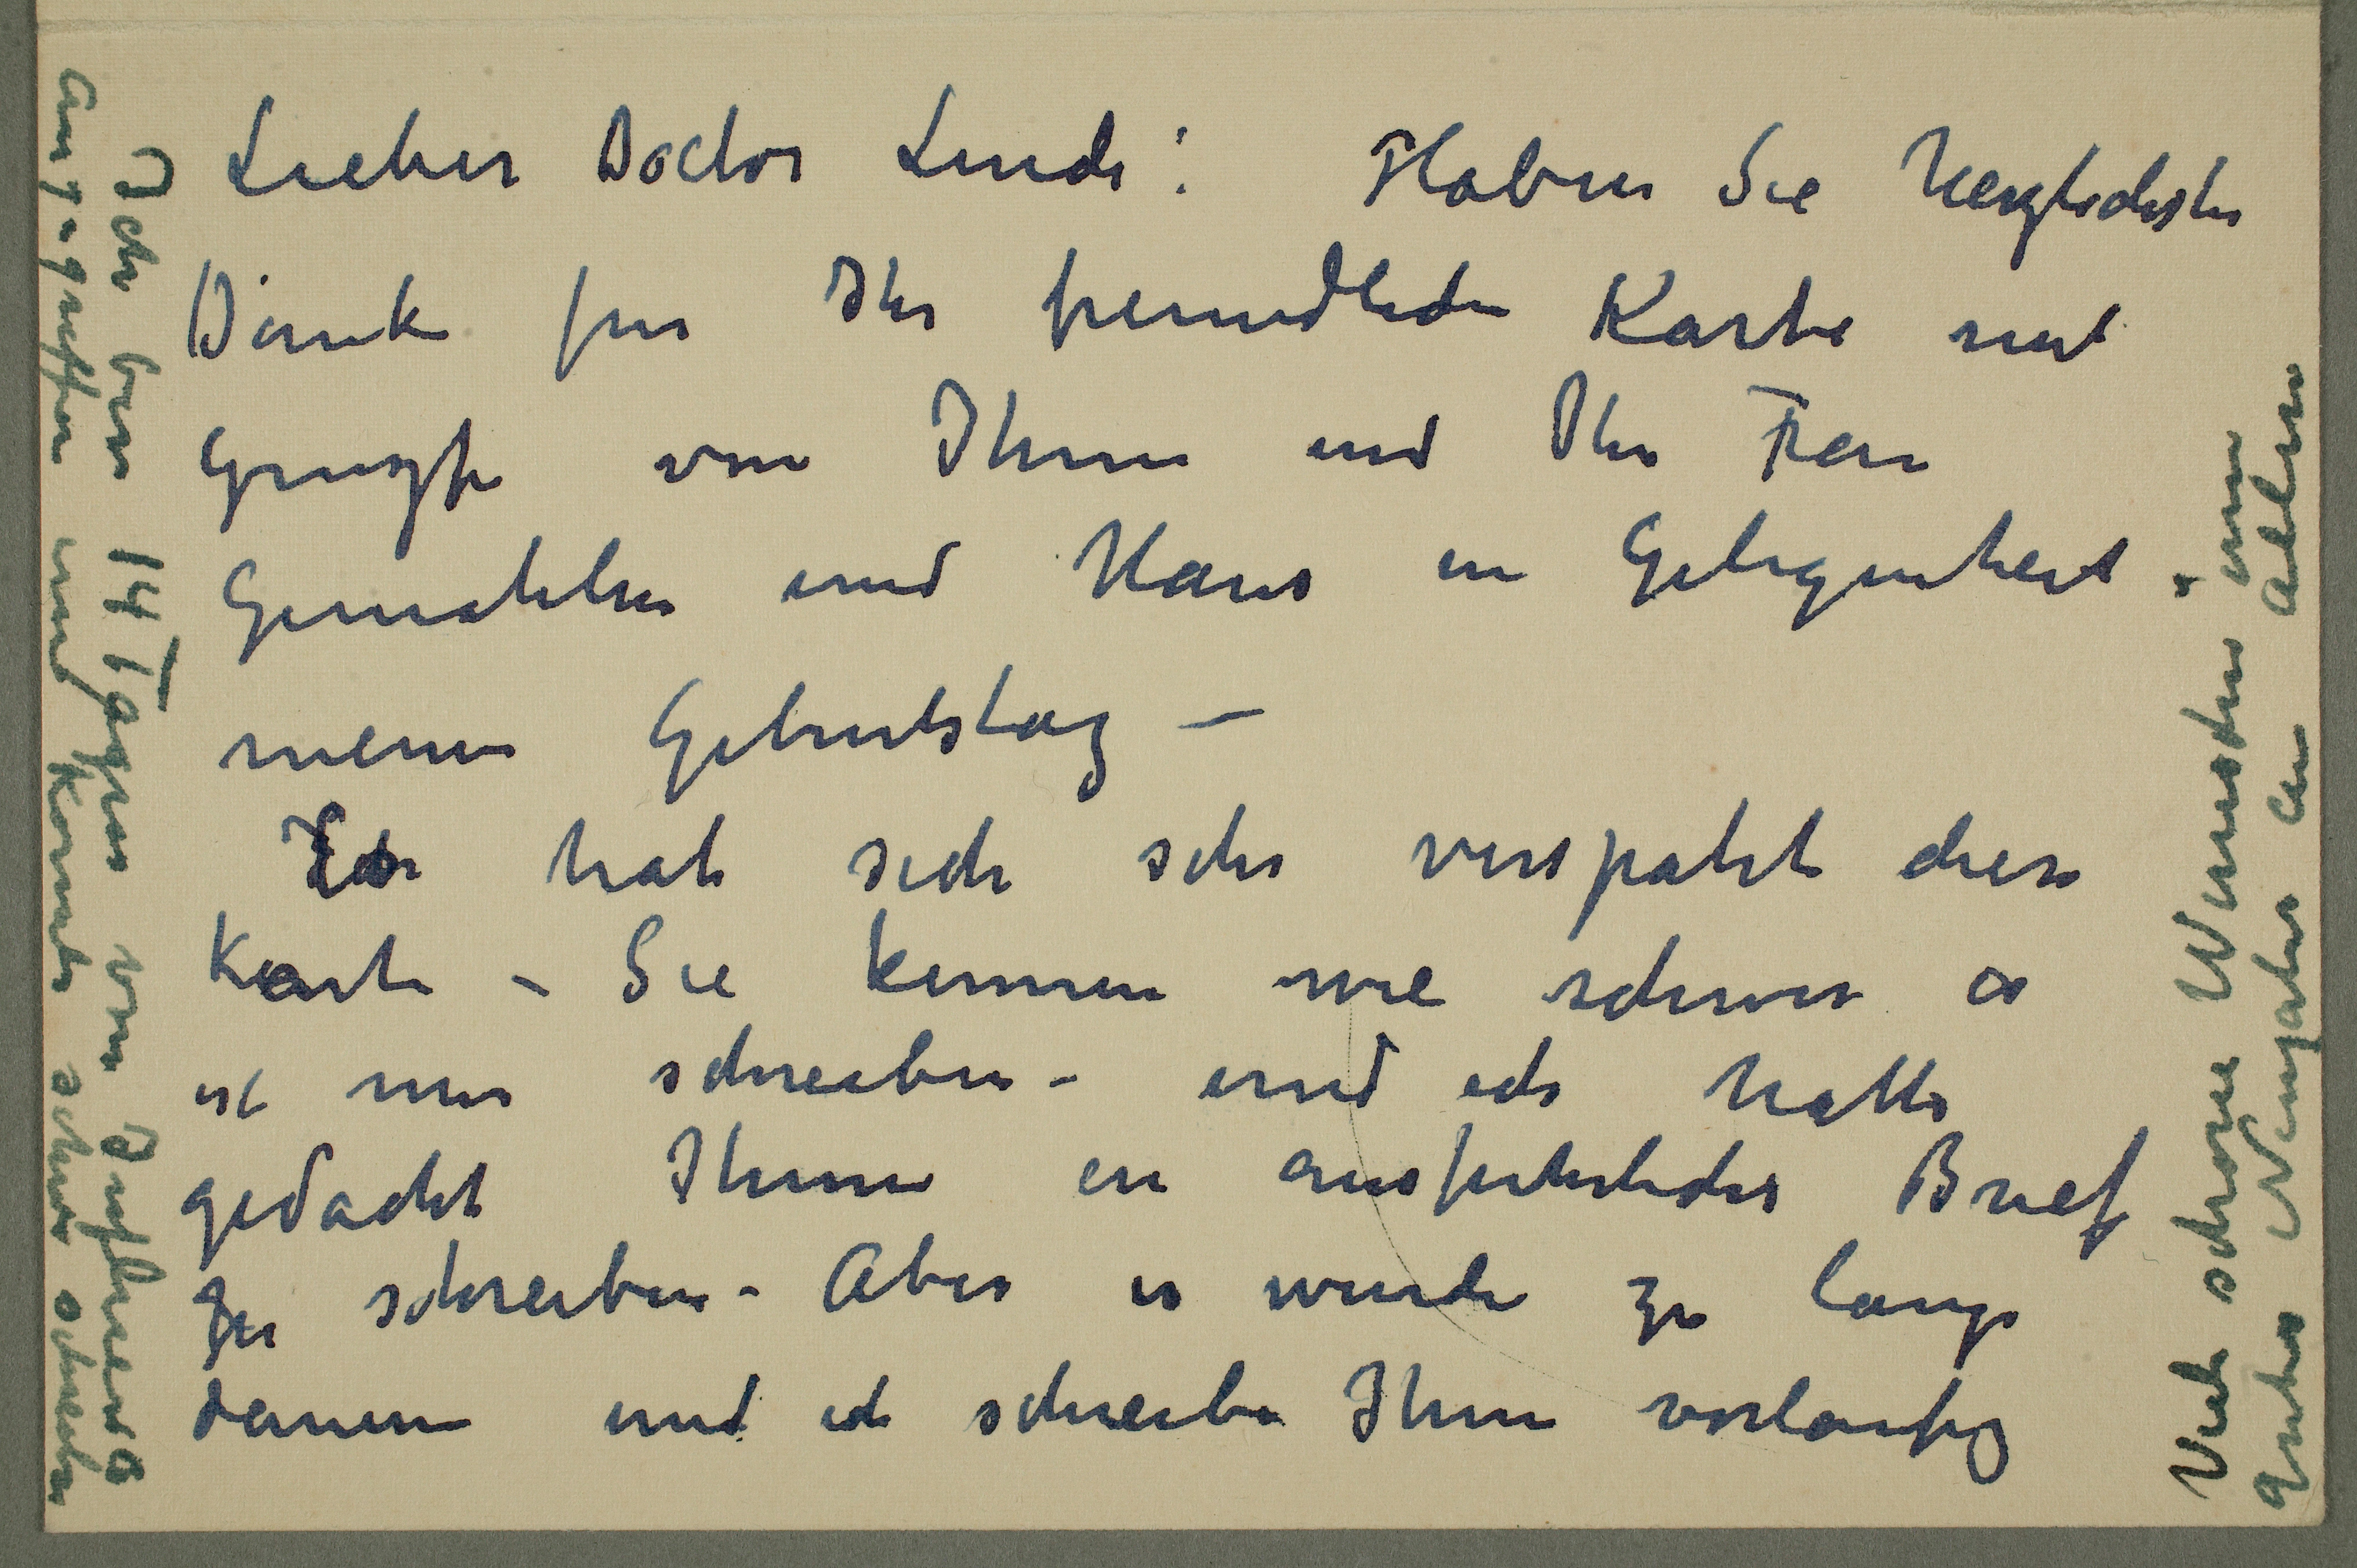 Lieber Doctor Linde! Haben Sie herzlichsten
Dank für Ihr freundlichen Karte mit
Gruszfe von Ihnen und Ihr Frau
Gemahlin und Haus in Gelegenheit
meinen Geburtstag –
Ich hab sich sehr verspätet diese
Karte – Sie kennen wie schwer es
ist mir schreiben – und ich hatte
gedacht Ihnen ein ausfuhrliches Brief
zu schreiben – Aber es wurde zu lange
dauern und ich schreibe Ihnen vorlaufig
Viele schöne Wunschen um
gutes Neujahr an Allen
Ich bin 14 Tagen von Influensa
angegreffen und konnte schwer schreiben